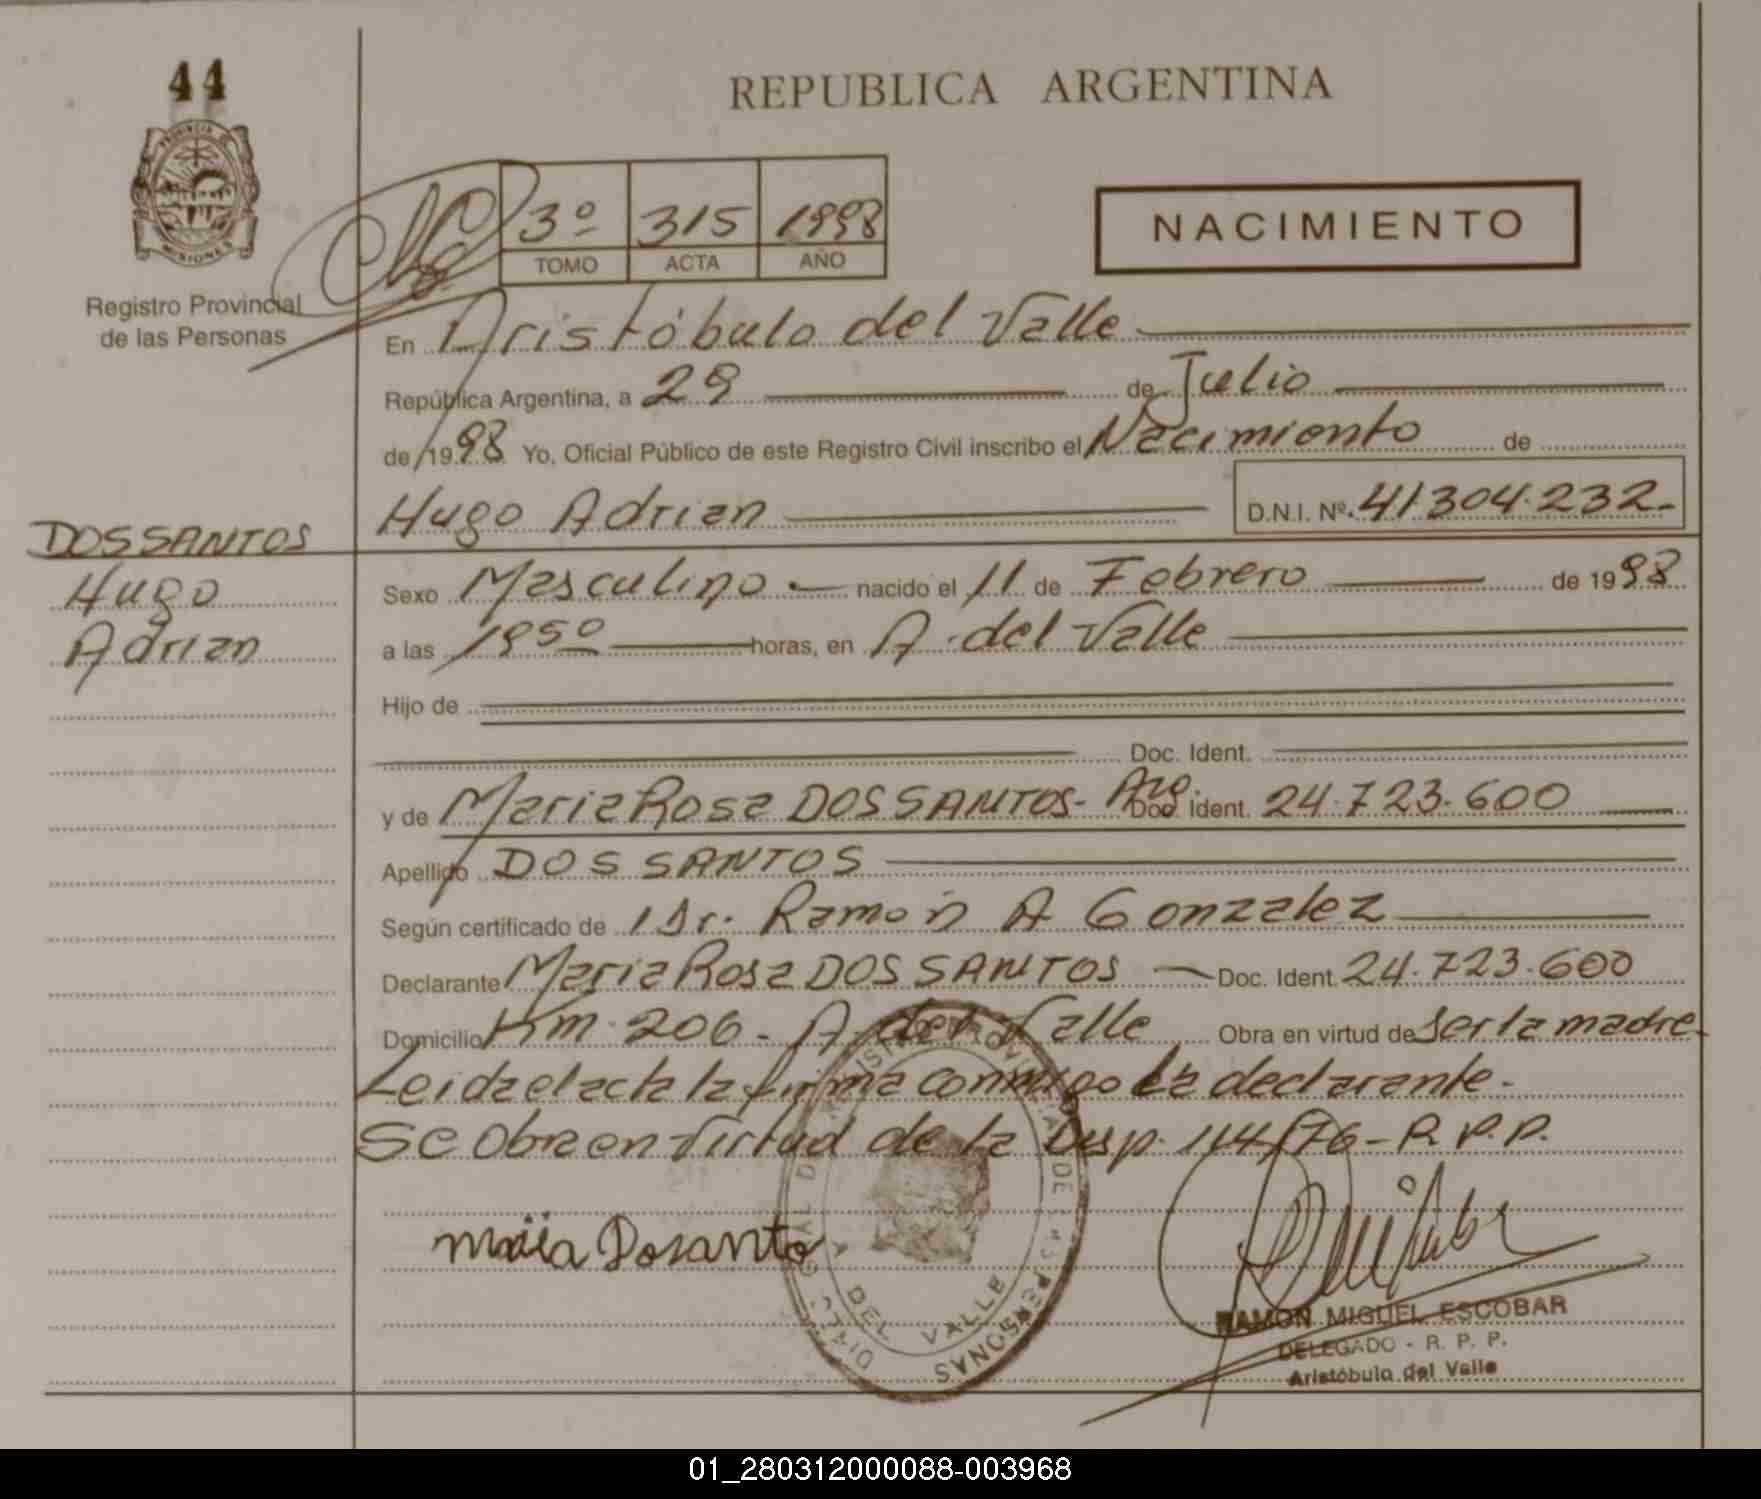 44
REPUBLICA ARGENTINA
PROVINCIA DE
MISIONES
Registro Provincial
de las Personas
3º 315 1998
TOMO ACTA AÑO
NACIMIENTO
En Aristóbulo del Valle
República Argentina, a 29 de Julio
de 1998 Yo, Oficial Público de este Registro Civil inscribo el Nacimiento de
Hugo Adrian D.N.I. Nº. 41304.232-
DOSSANTOS
Hugo
Adrian
Sexo Masculino nacido el 11 de Febrero de 1998
a las 1850 horas, en A. del Valle
Hijo de
Doc. Ident.
y de Maria Rosa DOS SANTOS- Arg. Doc. Ident. 24.723.600
Apellido DOS SANTOS
Según certificado de 1 Dr. Ramón A Gonzalez
Declarante Maria Rosa DOS SANTOS Doc. Ident. 24.723.600
Domicilio Km. 206 - A. del Valle Obra en virtud de ser la madre.
Leida el acta la firma conmigo la declarante.
Se Obra en Virtud de la Disp. 114/76 - R.P.P.
maria Dosanto
DEL VALLE
PERSONAS
RAMON MIGUEL ESCOBAR
DELEGADO - R. P. P.
Aristóbulo del Valle
01_280312000088-003968